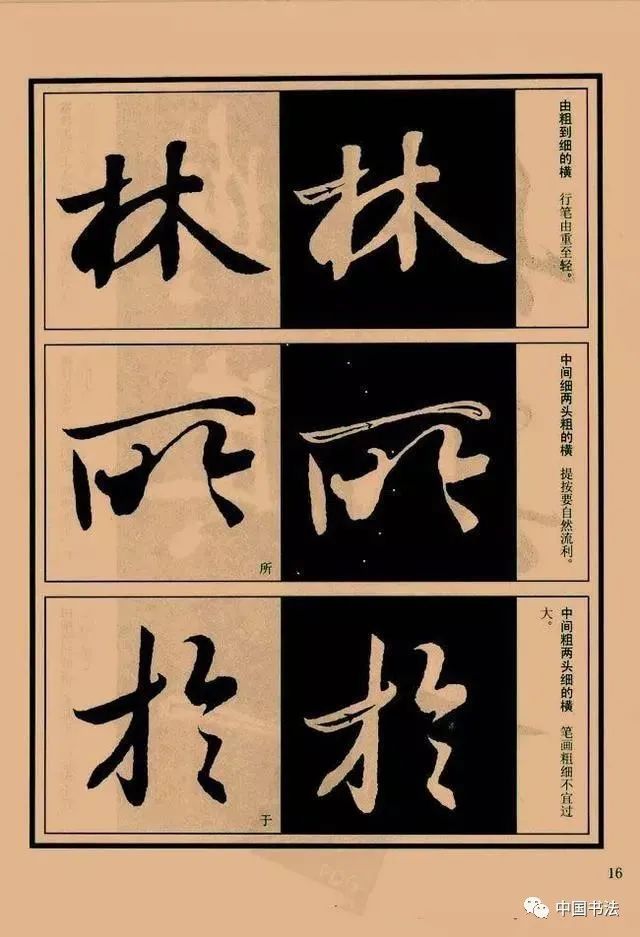 林
林
由粗到细的横 行笔由重至轻。
所
中间细两头粗的横 提按要自然流利。
于
中间粗两头细的横 笔画粗细不宜过
大。
16
中国书法